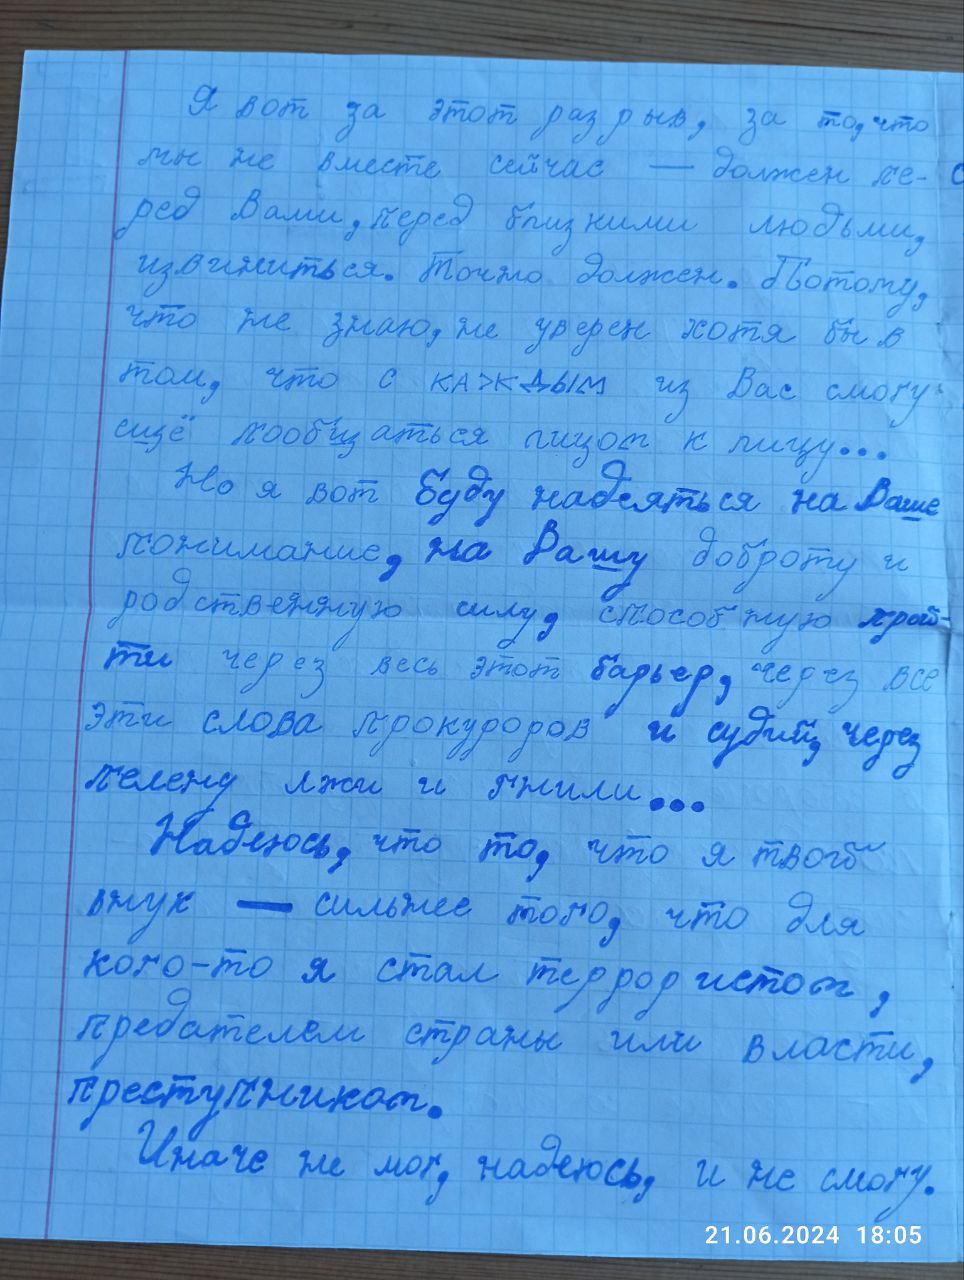 Я вот за этот разрыв, за то, что
мы не вместе сейчас — должен пе-
ред Вами, перед близкими людьми,
извиниться. Точно должен. Потому,
что не знаю, не уверен хотя бы в
том, что с каждым из Вас смогу
ещё пообщаться лицом к лицу...
Но я вот буду надеяться на Ваше
понимание, на Вашу доброту и
родственную силу, способную прой-
ти через весь этот барьер, через все
эти слова прокуроров и судий, через
пелену лжи и гнили...
Надеюсь, что то, что я твой
внук — сильнее того, что для
кого-то я стал террористом,
предателем страны или власти,
преступником.
Иначе не мог, надеюсь, и не смогу.
21.06.2024 18:05